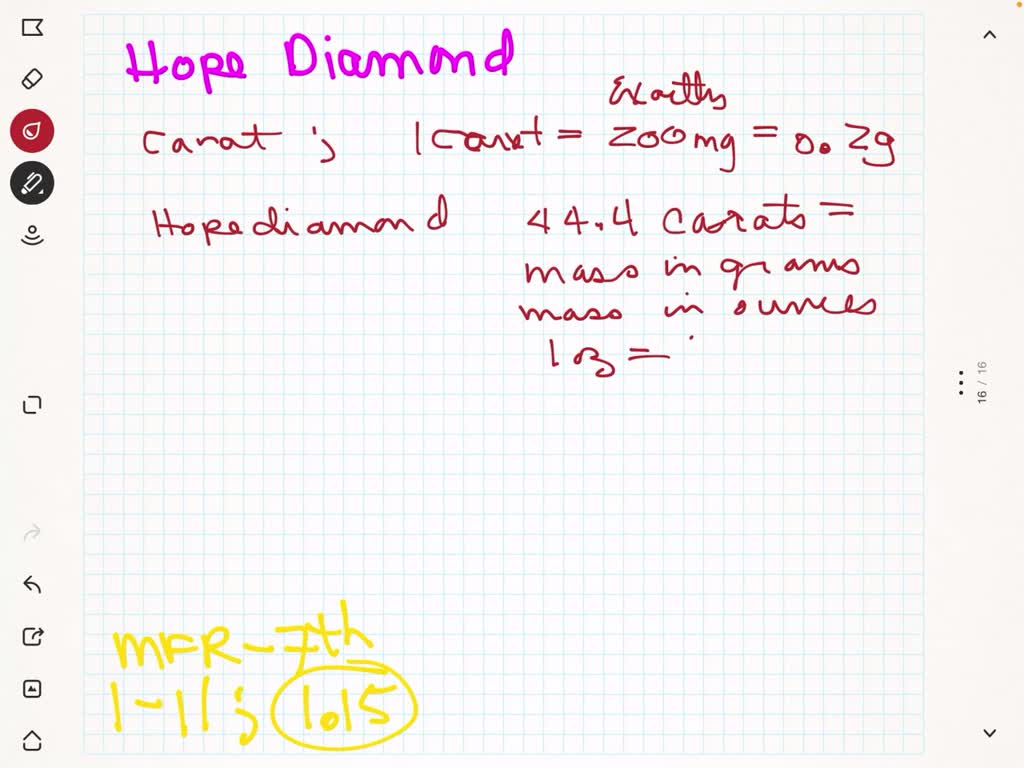 Hope Diamond
Exactly
Carat ; 1 Carat = 200 mg = 0.2g
Hope diamond 44.4 Carats =
mass in grams
mass in ounces
1 oz =
16 / 16
MFR - 7th
1-11 ; 1.15